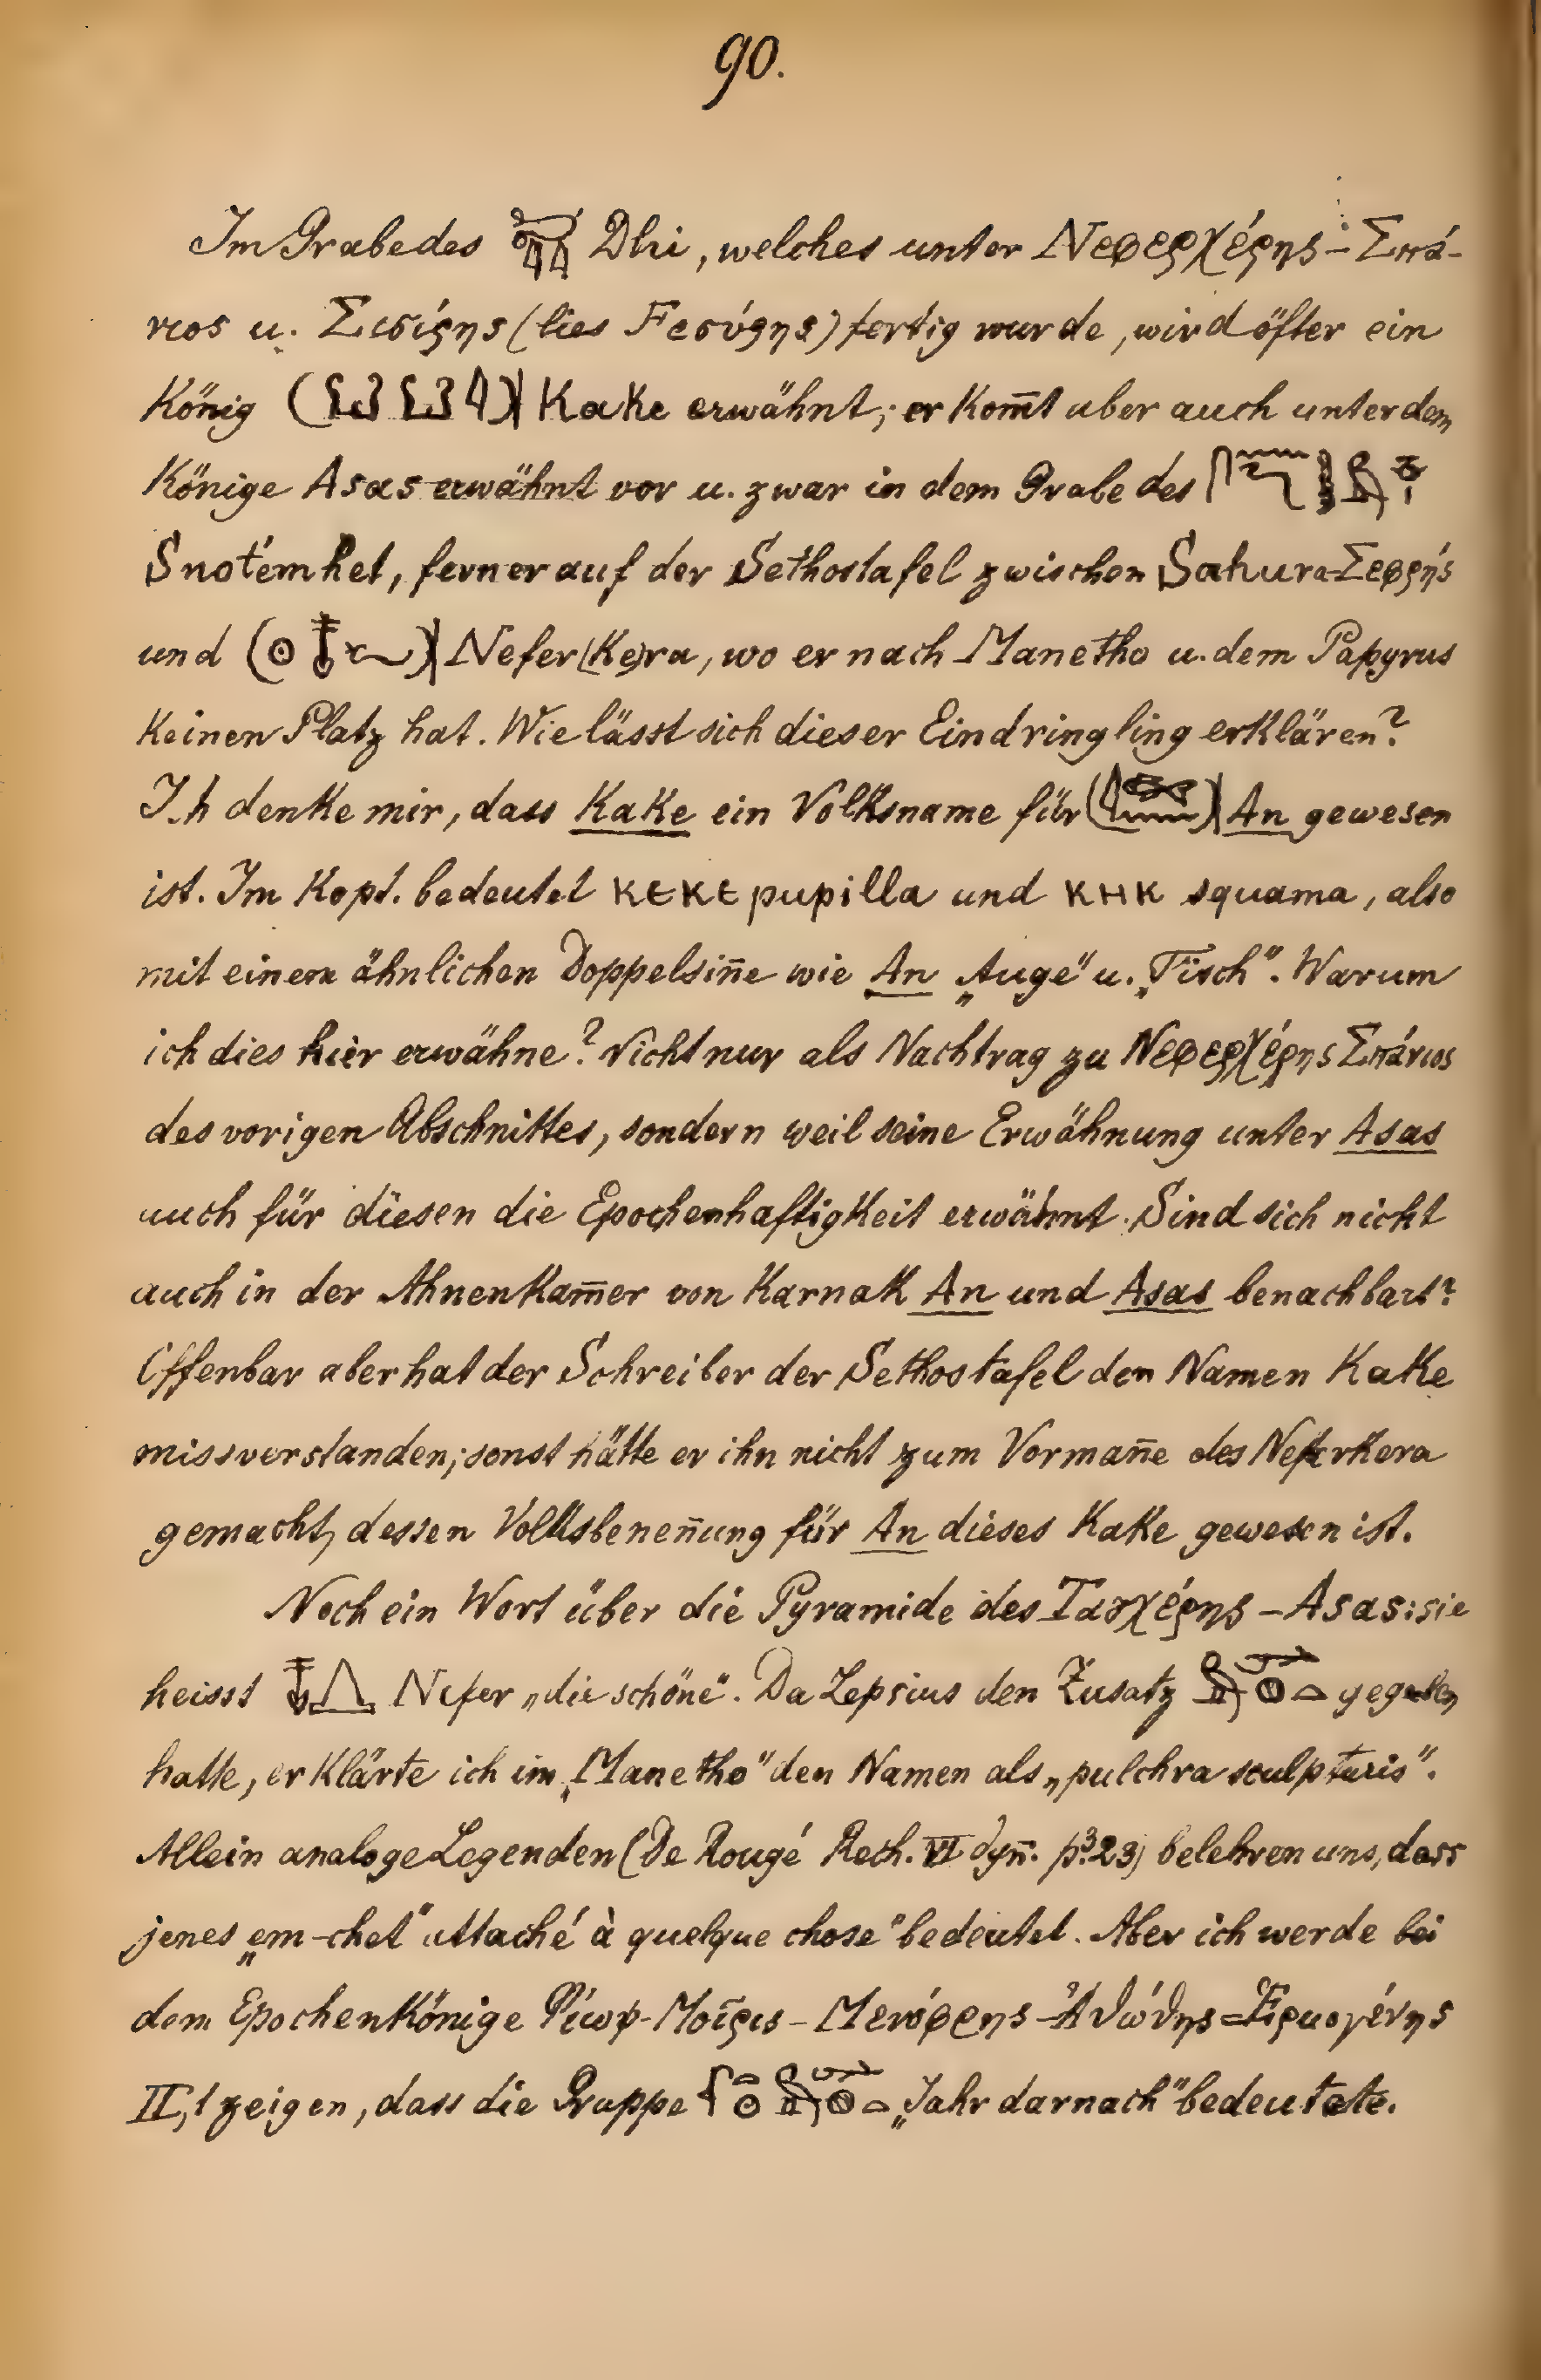 90.
Im Grabe des Dhi, welches unter Νεφερχέρης-Σπά-
νιος u. Σισίρης (lies Fεσύρης) fertig wurde, wird öfter ein
König Kake erwähnt; er kom̄t aber auch unter dem
Könige Asas erwähnt vor u. zwar in dem Grabe des
Snotémhet, ferner auf der Sethostafel zwischen Sahura-Σεφρής
und Nefer(ke)ra, wo er nach Manetho u. dem Papyrus
keinen Platz hat. Wie lässt sich dieser Eindringling erklären?
Ich denke mir, dass Kake ein Volksname für An gewesen
ist. Im Kopt. bedeutet ⲕⲉⲕⲉ pupilla und ⲕⲏⲕ squama, also
mit einem ähnlichen Doppelsin̄e wie An „Auge" u. „Fisch". Warum
ich dies hier erwähne? Nicht nur als Nachtrag zu Νεφερχέρης Σπάνιος
des vorigen Abschnittes, sondern weil seine Erwähnung unter Asas
auch für diesen die Epochenhaftigkeit erwähnt. Sind sich nicht
auch in der Ahnenkam̄er von Karnak An und Asas benachbart?
Offenbar aber hat der Schreiber der Sethostafel den Namen Kake
missverstanden; sonst hätte er ihn nicht zum Vorman̄e des Neferkera
gemacht, dessen Volksbenen̄ung für An dieses Kake gewesen ist.
Noch ein Wort über die Pyramide des Τατχέρης - Asas: sie
heisst Nefer „die schöne". Da Lepsius den Zusatz gegeben
hatte, erklärte ich im „Manetho" den Namen als „pulchra sculpturis".
Allein analoge Legenden (De Rougé Rech. VI dyn̄. p. 323) belehren uns, dass
jenes „em-chet" attaché à quelque chose" bedeutet. Aber ich werde bei
dem Epochenkönige Φίωψ-Μοῖρις - Μενόφρης - Ἀθώθης = Ἑρμογένης
II, 1 zeigen, dass die Gruppe „Jahr darnach" bedeutete.